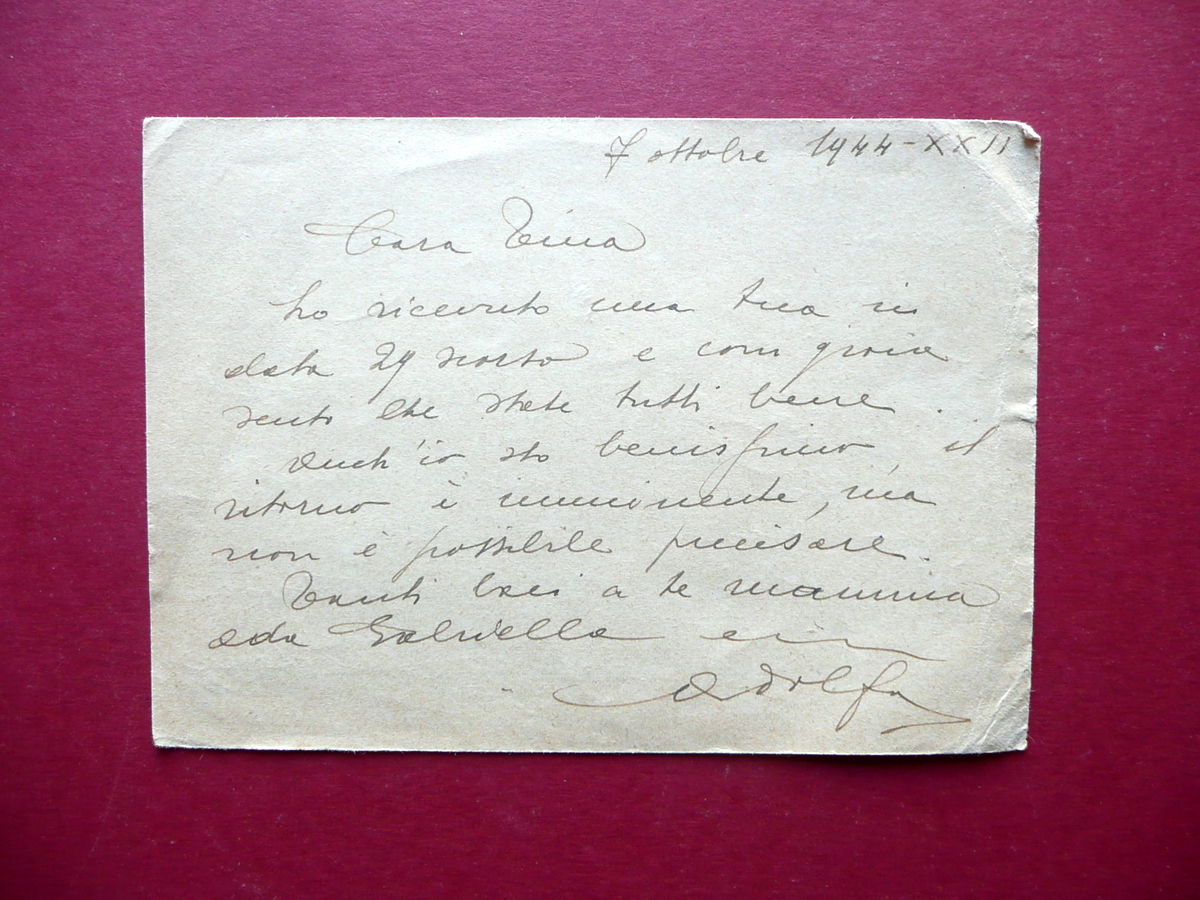 7 ottobre 1944-XXII
Cara Tina
ho ricevuto una tua in
data 29 agosto e con gioia
sento che state tutti bene.
Anch'io sto benissimo, il
ritorno è imminente, ma
non è possibile precisare.
Tanti baci a te mamma
Ada Gabriella
Adolfo